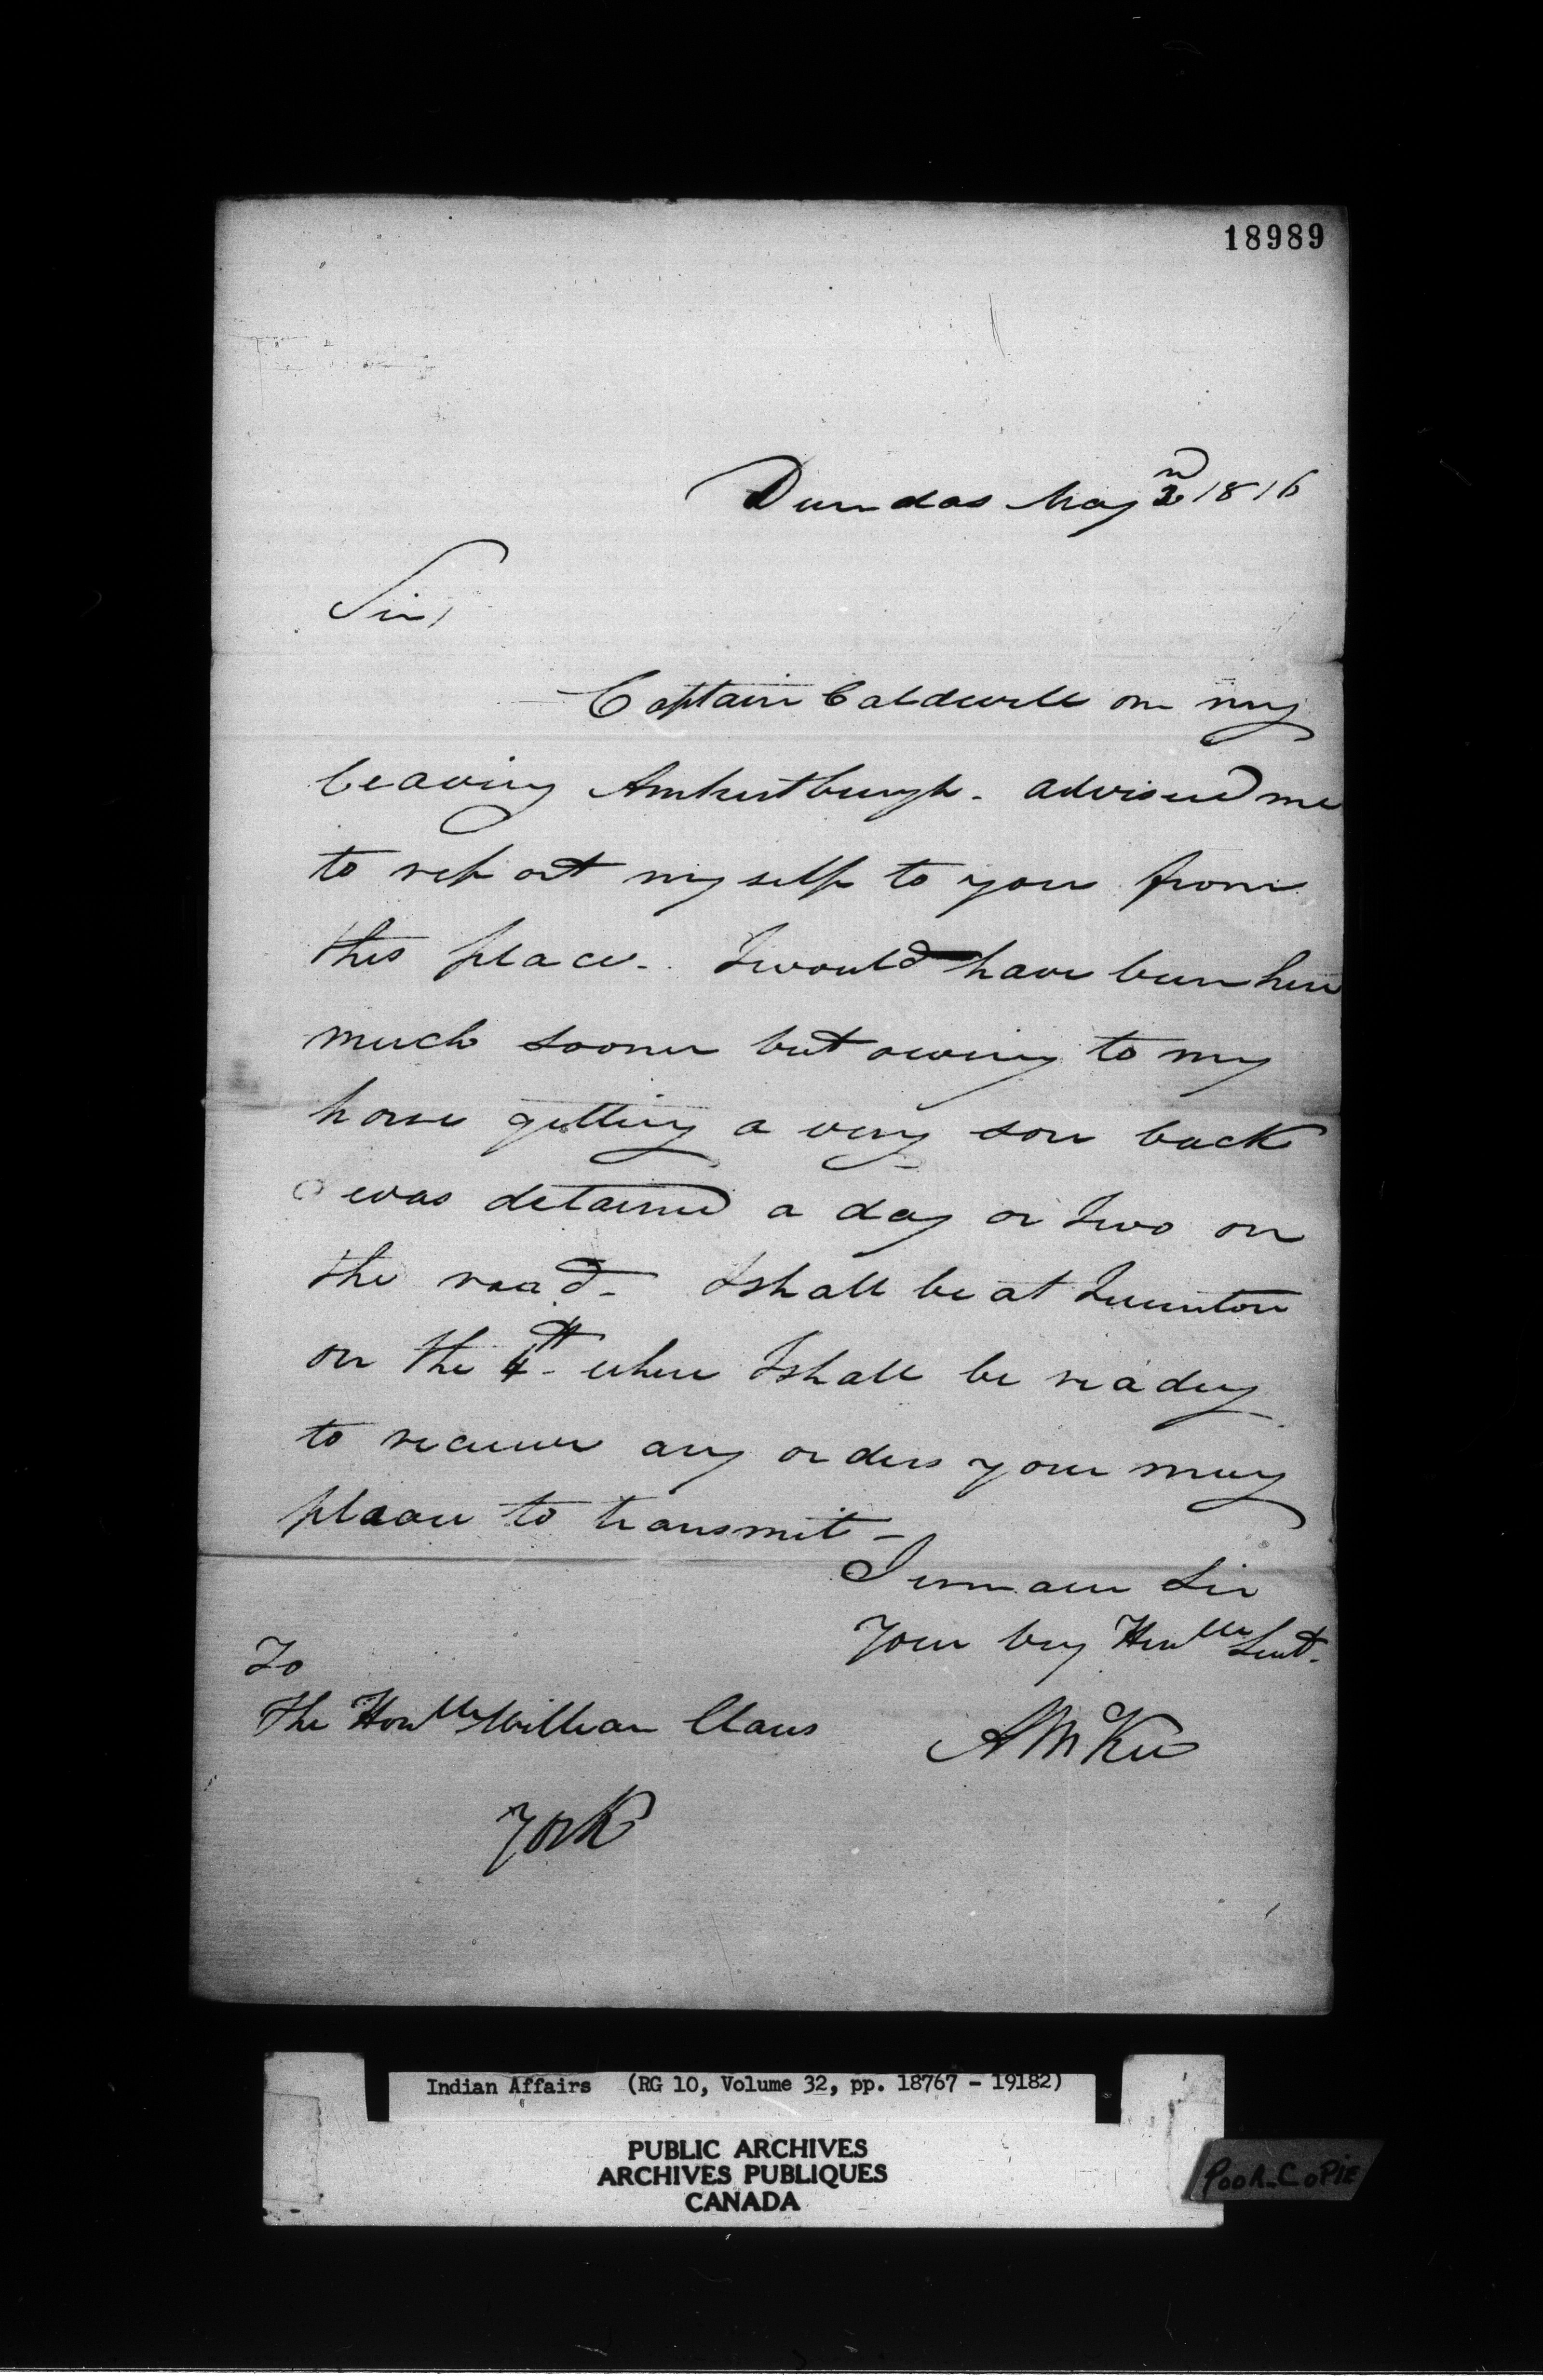 18989
Dundas May 2nd 1816
Sir,
Captain Caldwell on my
leaving Amherstburgh - advised me
to report myself to you from
this place - I would have been here
much sooner but owing to my
horse getting a very sore back
I was detained a day or two on
the road - I shall be at Queenston
on the 4th - where I shall be ready
to receive any orders you may
please to transmit -
I remain Sir
Your very Hum'ble Servt.
To
The Hon'ble William Claus
A McKee
York
Indian Affairs (RG 10, Volume 32, pp. 18767 - 19182)
PUBLIC ARCHIVES
ARCHIVES PUBLIQUES
CANADA
POOR COPIE